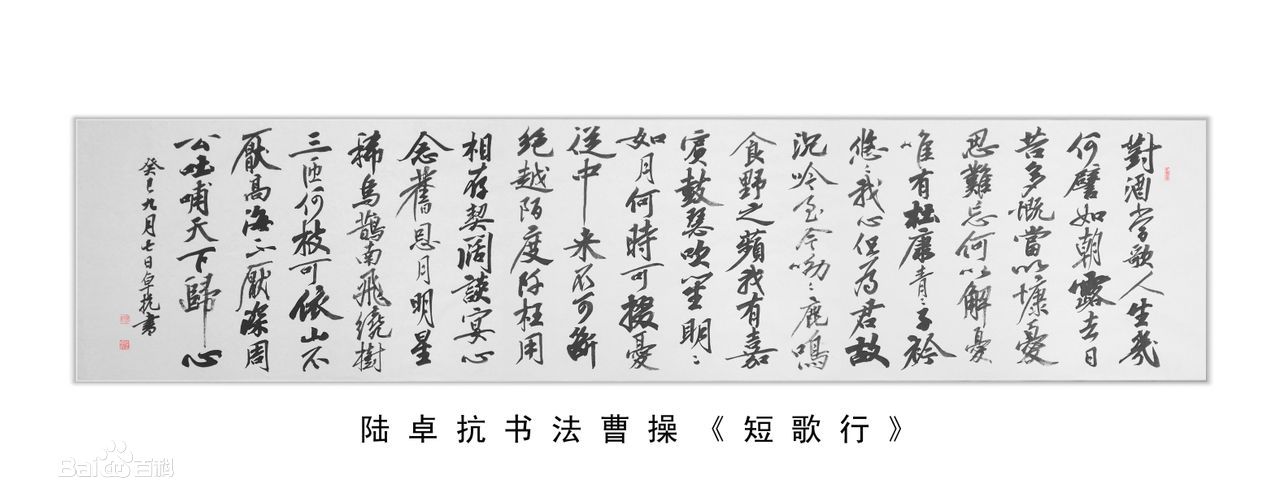 對酒當歌人生幾
何譬如朝露去日
苦多慨當以慷憂
思難忘何以解憂
唯有杜康青〻子衿
悠〻我心但為君故
沉吟至今呦〻鹿鳴
食野之蘋我有嘉
賓鼓瑟吹笙明〻
如月何時可掇憂
從中來不可斷
絕越陌度阡枉用
相存契闊談宴心
念舊恩月明星
稀烏鵲南飛繞樹
三匝何枝可依山不
厭高海不厭深周
公吐哺天下歸心
癸巳九月七日卓抗書
陆卓抗书法曹操《短歌行》
Baidu百科